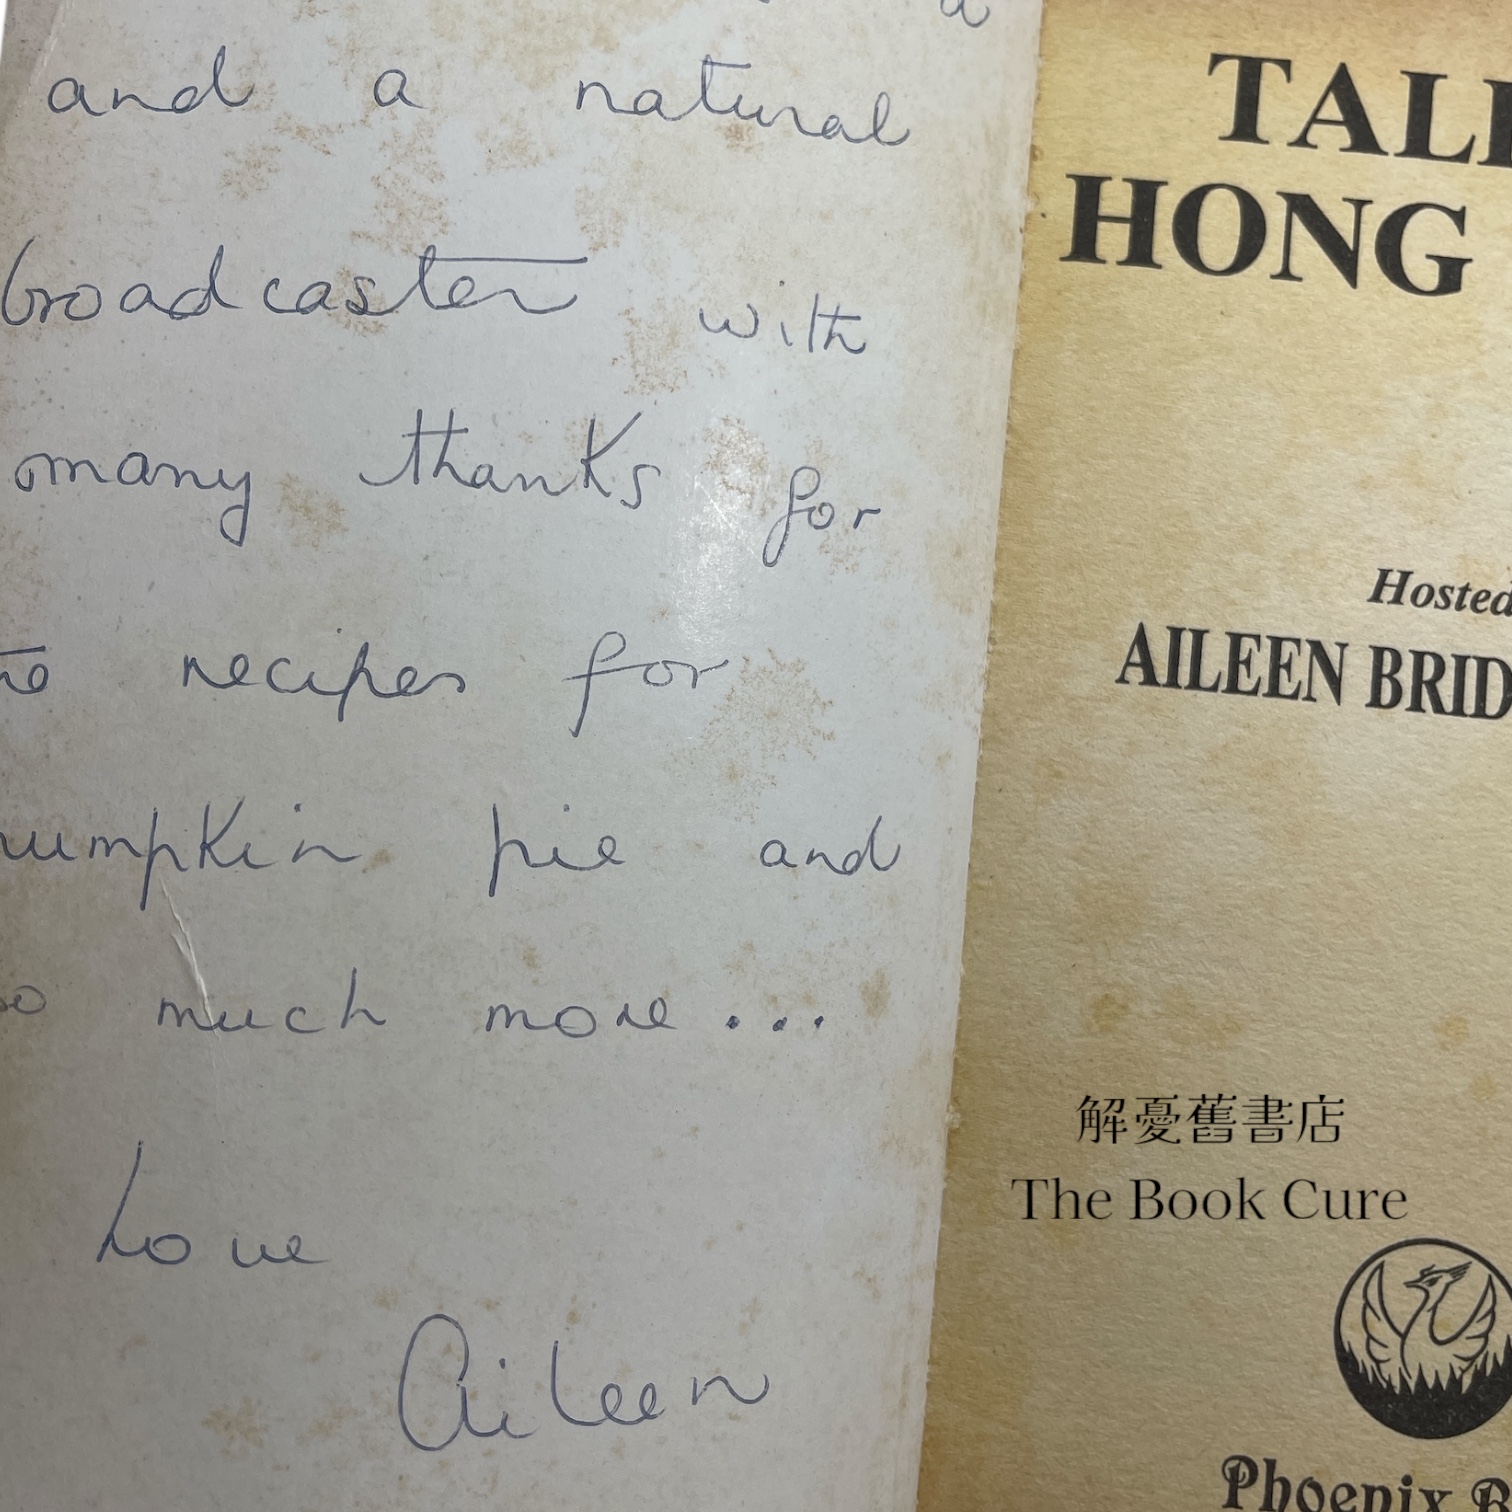 a
and a natural
broadcaster with
many thanks for
recipes for
pumpkin pie and
so much more...
Love
Aileen
TAL
HONG
Hosted
AILEEN BRID
解憂舊書店
The Book Cure
Phoenix